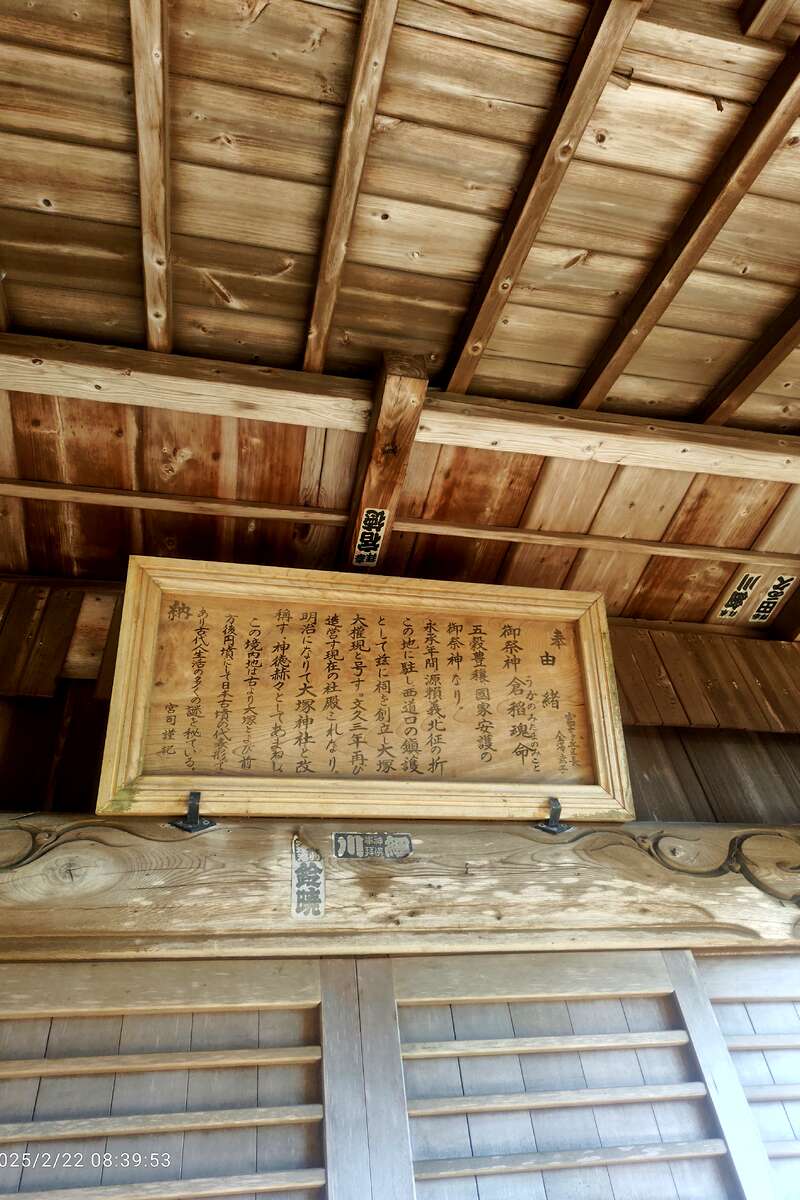 奉
由緒
御祭神 倉稲魂命
うかのみたまのみこと
五穀豊穣 國家安護の
御祭神なり。
永承年間源頼義北征の折
この地に駐し西道口の鎮護
として茲に祠を創立、大塚
大権現と号す。文久三年再び
造営す現在の社殿これなり。
明治になりて大塚神社と改
称す。神徳赫々としてあまねし
この境内地は古より大塚とよび前
方後円墳にして日本古墳の代表形で
あり古代人生活の多くの謎を秘ている。
宮司 謹紀
納
川
鈴暁
2025/2/22 08:39:53